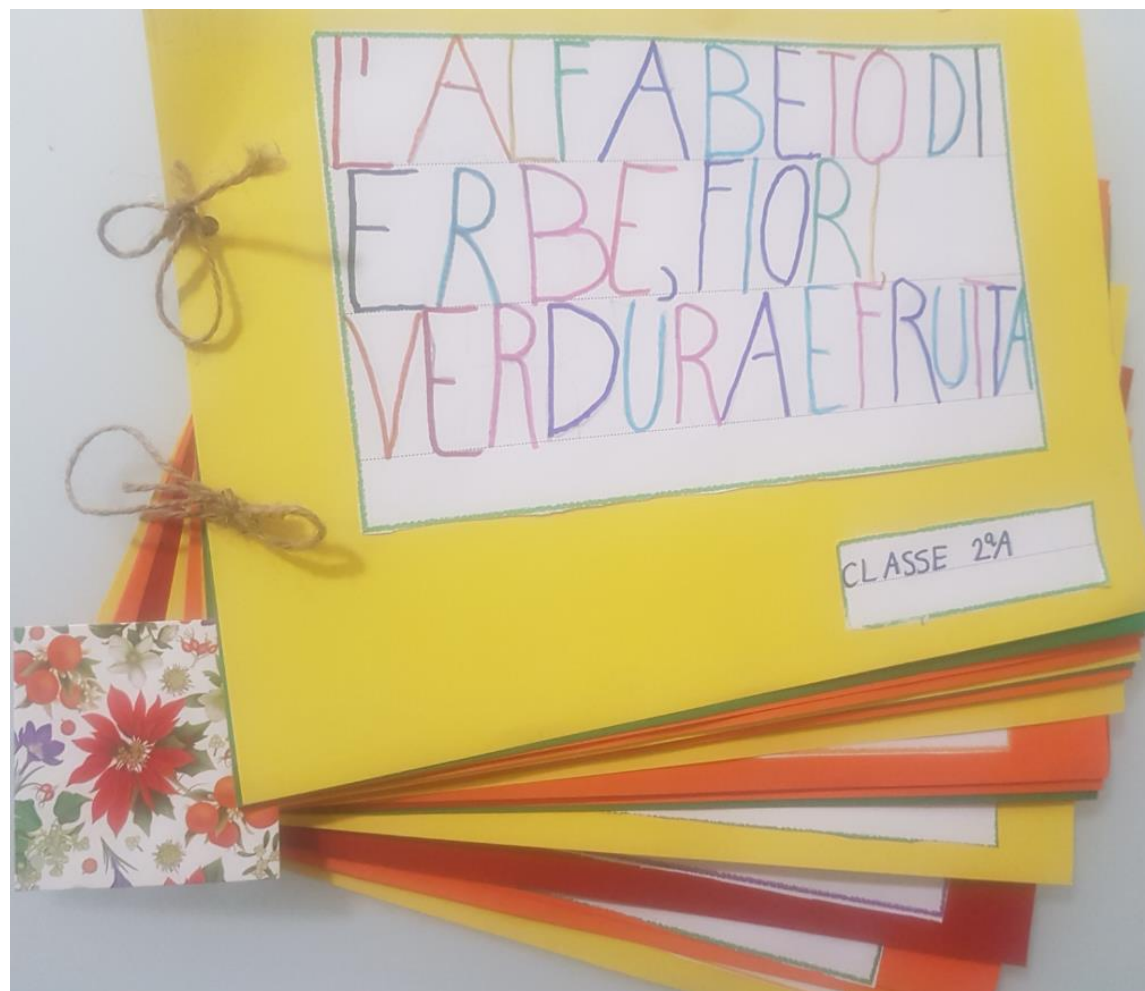 L'ALFABETO DI
ERBE, FIORI,
VERDURA E FRUTTA
CLASSE 2ªA